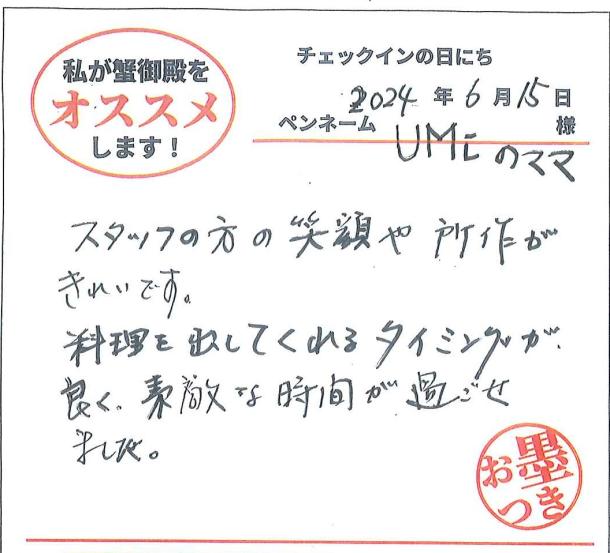 私が蟹御殿を
オススメ
します！
チェックインの日にち
2024 年 6 月 15 日
ペンネーム UMiのママ 様
スタッフの方の笑顔や所作が
きれいです。
料理を出してくれるタイミングが
良く、素敵な時間が過ごせ
ました。
お墨
つき